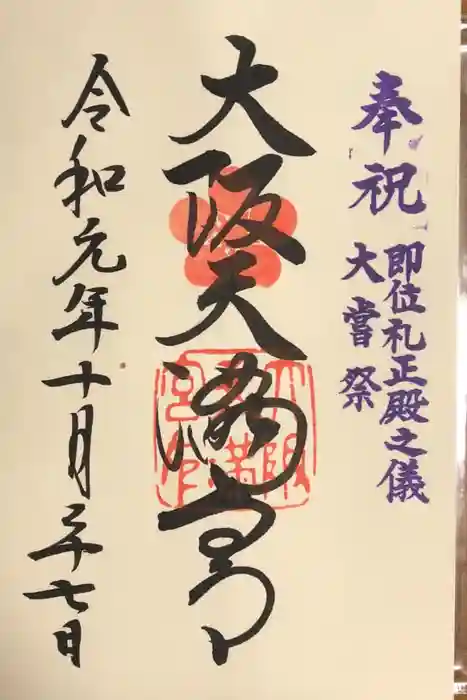 奉祝
即位礼正殿之儀
大嘗祭
大阪天満宮
令和元年十月二十七日